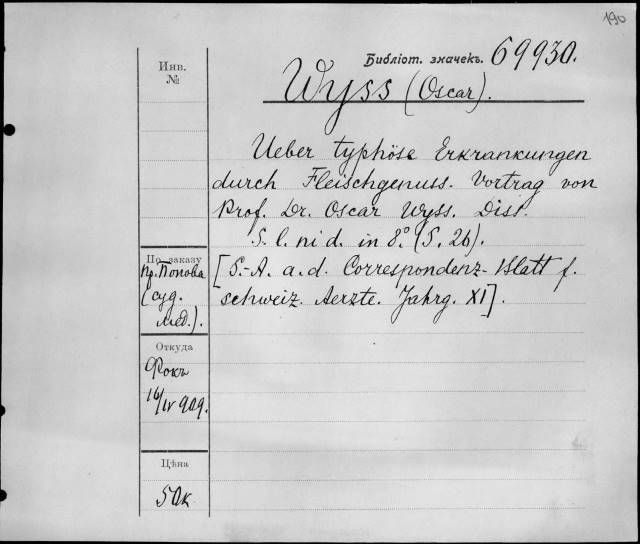 190
Библіот. значекъ. 69930.
Инв.
№
Wyss (Oscar).
Ueber typhöse Erkrankungen
durch Fleischgenuss. Vortrag von
Prof. Dr. Oscar Wyss. Diss.
S. l. ni d. in 8.° (S. 26).
[S.-A. a. d. Correspondenz-Blatt f.
schweiz. Aerzte. Jahrg. XI].
По заказу
пр. Попова
(суд.
мед.).
Откуда
Фокъ
16/IV 909.
Цѣна
50к